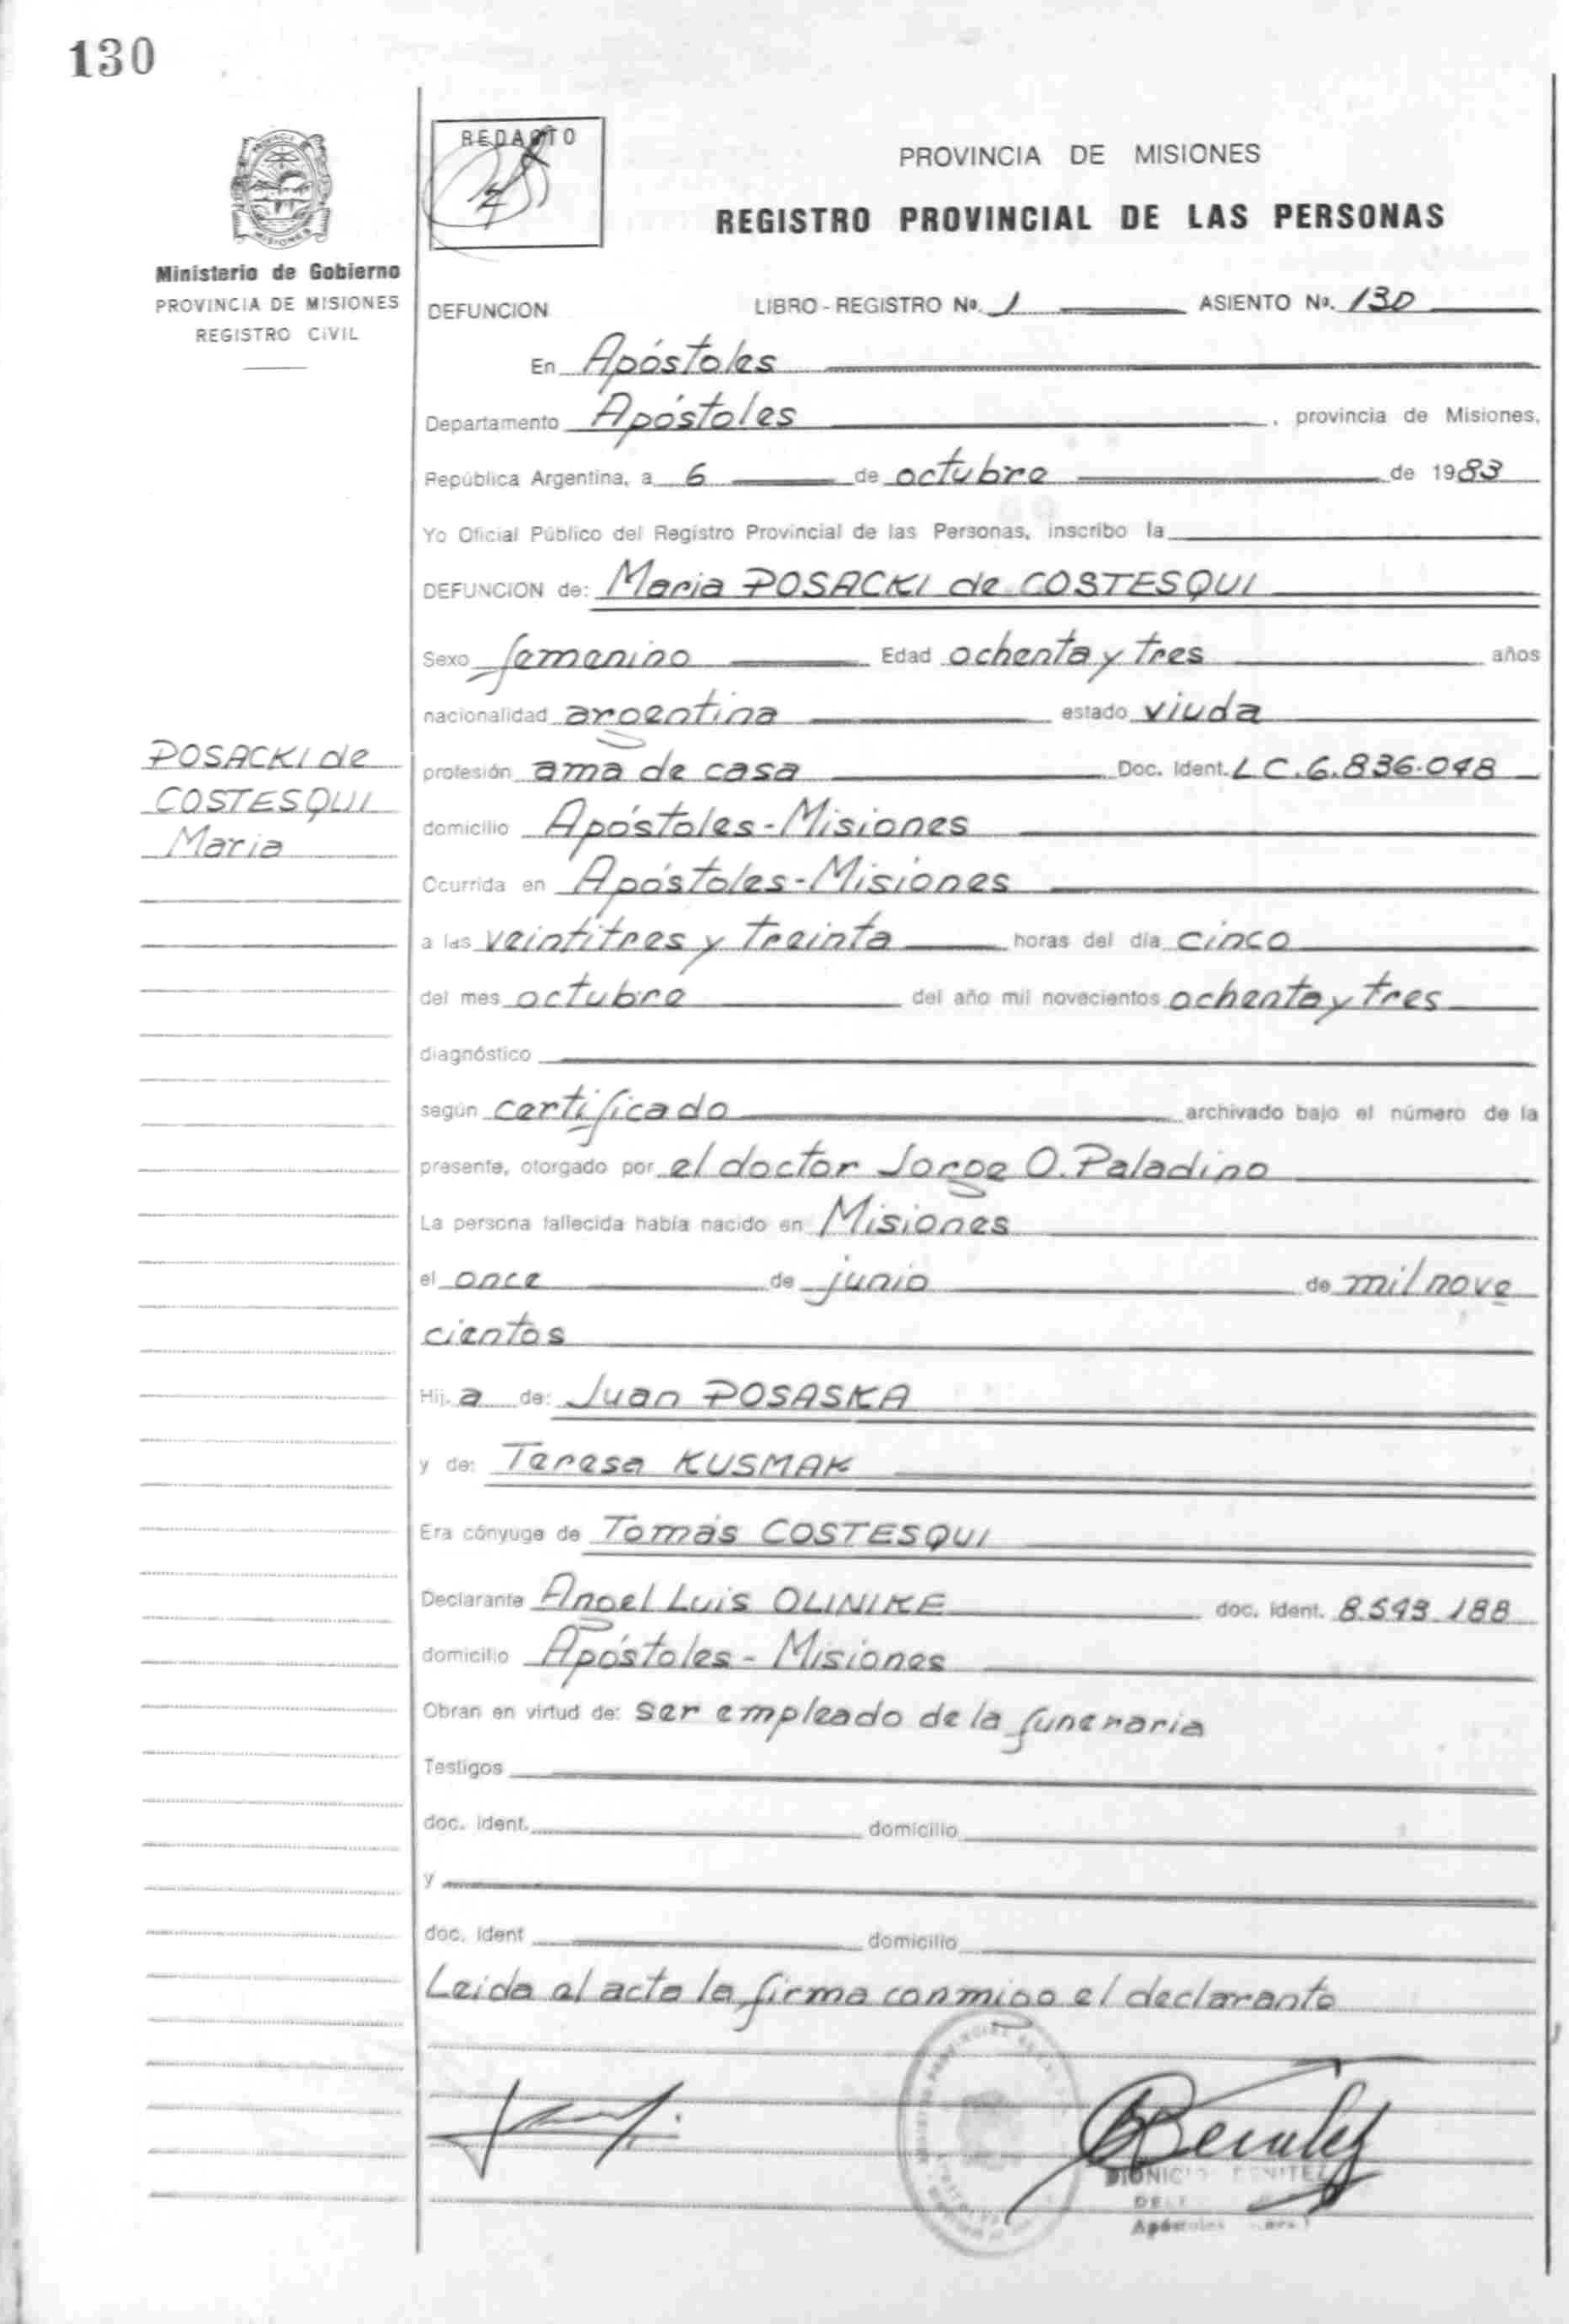 130
Ministerio de Gobierno
PROVINCIA DE MISIONES
REGISTRO CIVIL
POSACKI de
COSTESQUI
Maria
REDACTO
PROVINCIA DE MISIONES
REGISTRO PROVINCIAL DE LAS PERSONAS
DEFUNCION LIBRO - REGISTRO Nº. 1 ASIENTO Nº. 130
En Apóstoles
Departamento Apóstoles, provincia de Misiones,
República Argentina, a 6 de octubre de 1983
Yo Oficial Público del Registro Provincial de las Personas, inscribo la
DEFUNCION de: Maria POSACKI de COSTESQUI
Sexo femenino Edad ochenta y tres años
nacionalidad argentina estado viuda
profesión ama de casa Doc. Ident. L C. 6.836.048
domicilio Apóstoles - Misiones
Ocurrida en Apóstoles - Misiones
a las veintitres y treinta horas del día cinco
del mes octubre del año mil novecientos ochenta y tres
diagnóstico
según certificado archivado bajo el número de la
presente, otorgado por el doctor Jorge O. Paladino
La persona fallecida había nacido en Misiones
el once de junio de mil nove
cientos
Hij. a de: Juan POSASKA
y de: Teresa KUSMAK
Era cónyuge de Tomás COSTESQUI
Declarante Angel Luis OLINIKE doc. ident. 8.549.188
domicilio Apóstoles - Misiones
Obran en virtud de: ser empleado de la funeraria
Testigos
doc. ident. domicilio
y
doc. ident domicilio
Leida el acta la firma conmigo el declarante
DIONICIO BENITEZ
Apóstoles